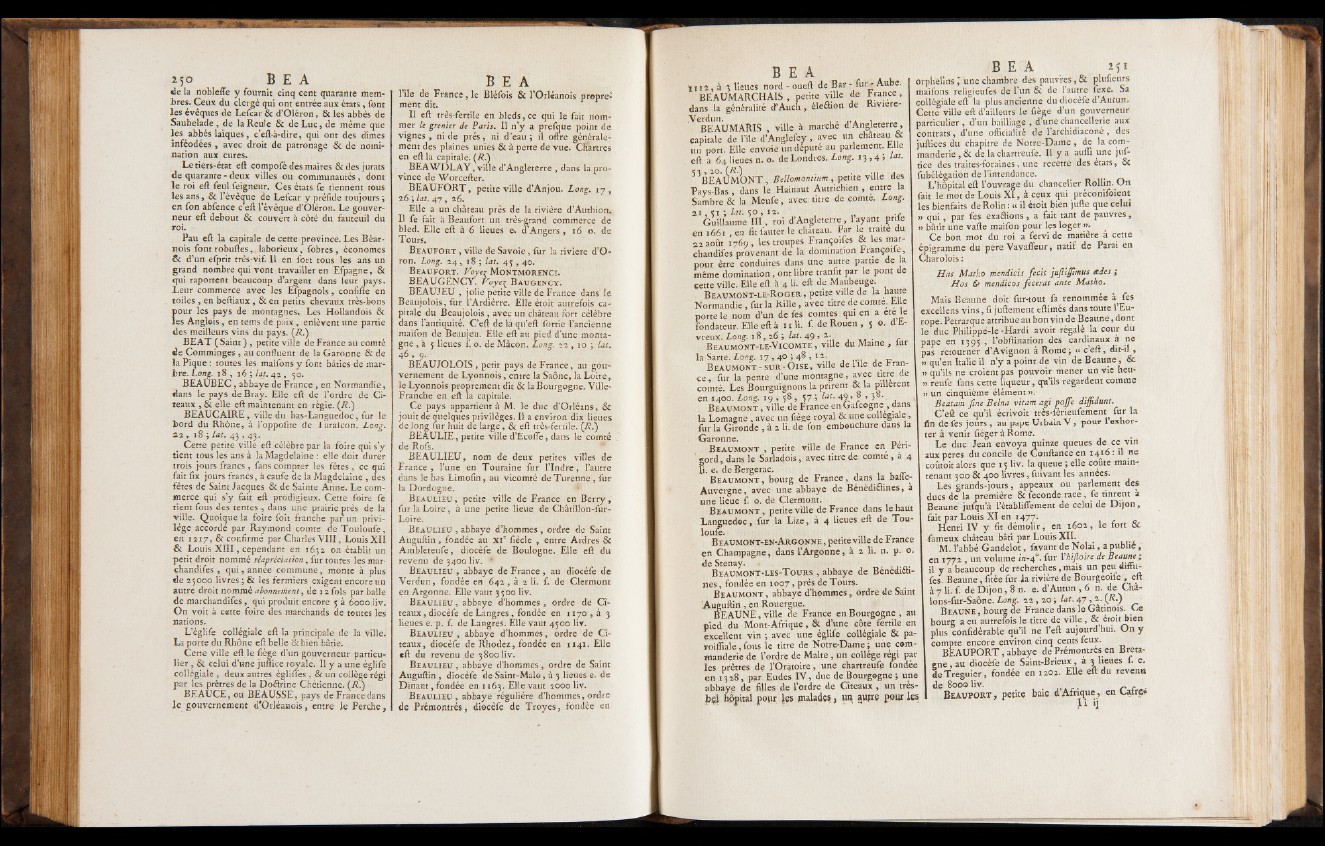 250 B E A
de la nobleſſe y fournit cinq cent quarante mem-
bres. Ceux du clergé qui ont entrée aux états, ſont
les évêques de Leſcar & d'Oléron, & les abbés de
Saubelade, de la Reu'e & de Luc, de même que
les abbés laïques, c'eſt-à-dire, qui ont des dîmes
inféodées, avec droit de patronage & de nomi-
nation aux cures.
Le tiers-état eſt compoſé des maires & des jurats
de quarante-deux villes ou communautés, dont
le roi eſt ſeul ſeigneur. Ces états ſe tiennent tous
les ans, & l'évêque de Leſcar y préſide toujours;
en ſon abſence c'eſt l'évêque d'Oléron. Le gouver-
neur eſt debout & couvert à côté du fauteuil du
roi.
Pau eſt la capitale de cette province. Les Béar-
nois ſont robuſtes, laborieux, ſobres, économes
& d'un eſprit très-vif. Il en ſort tous les ans un
grand nombre qui vont travailler en Eſpagne, &
qui raportent beaucoup d'argent dans leur pays.
Leur commerce avec les Eſpagnols, conſiſte en
toiles, en beſtiaux, & en petits chevaux très-bons
pour les pays de montagnes. Les Hollandois &
les Anglois, en tems de paix, enlèvent une partie
des meilleurs vins du pays. (R.)
BEAT (Saint), petite ville de France au comté
de Comminges, au confluent de la Garonne & de
la Pique: toutes les maiſons y ſont bâties de mar-
bre. Long. 18, 16; lat. 42, 50.
BEAUBEC, abbaye de France, en Normandie,
dans le pays de Bray. Elle eſt de l'ordre de Ci-
teaux, & elle eſt maintenant en règie. (R.)
BEAUCAIRE, ville du bas-Languedoc, ſur le
bord du Rhône, à l'oppoſite de Taraſcon. Long.
22, 18; lat. 43, 43.
Cette petite ville eſt célèbre par la foire qui s'y
tient tous les ans à la Magdelaine: elle doit durer
trois jours francs, ſans compter les fêtes, ce qui
fait ſix jours francs, à cauſe de la Magdelaine, des
fêtes de Saint Jacques & de Sainte Anne. Le com-
merce qui s'y fait eſt prodigieux. Cette foire ſe
tient ſous des tentes, dans une prairie près de la
ville. Quoique la foire ſoit franche par un privi-
lège accordé par Raymond comte de Toulouſe,
en 1217, & confirmé par Charles VIII, Louis XII
& Louis XIII, cependant en 1632 on établit un
petit droit nommé réapréciation, ſur toutes les mar-
chandiſes, qui, année commune, monte à plus
de 25000 livres; & les fermiers exigent encore un
autre droit nommé abonnement, de 12 ſols par balle
de marchandiſes, qui produit encore 5 à 6000 liv.
On voit à cette foire des marchands de toutes les
nations.
L'égliſe collégiale eſt la principale de la ville.
La porte du Rhône eſt belle & bien bâtie.
Cette ville eſt le ſiège d'un gouverneur particu-
lier, & celui d'une juſtice royale. Il y a une égliſe
collégiale, deux autres égliſes, & un collège régi
par les prêtres de la Doctrine Chrétienne. (R.)
BEAUCE, ou BEAUSSE, pays de France dans
le gouvernement d'Orléanois, entre le Perche,
B E A
l'île de France, le Bléſois & l'Orléanois propre-
ment dit.
Il eſt très-fertile en bleds, ce qui le fait nom-
mer le grenier de Paris. Il n'y a preſque point de
vignes, ni de prés, ni d'eau; il offre générale-
ment des plaines unies & à perte de vue. Chartres
en eſt la capitale. (R.)
BEAWDLAY, ville d'Angleterre, dans la pro-
vince de Worceſter.
BEAUFORT, petite ville d'Anjou. Long. 17,
26; lat. 47, 26.
Elle a un château près de la rivière d'Authion.
Il ſe fait à Beaufort un très-grand commerce de
bled. Elle eſt à 6 lieues e. d'Angers, 16 o. de
Tours.
BEAUFORT, ville de Savoie, ſur la riviere d'O-
ron. Long. 24, 18; lat. 45, 40.
BEAUFORT. Voyez MONTMORENCI.
BEAUGENCY. Voyez BAUGENCY.
BEAUJEU, jolie petite ville de France dans le
Beaujolois, ſur l'Ardière. Elle étoit autrefois ca-
pitale du Beaujolois, avec un château fort célèbre
dans l'antiquité. C'eſt de là qu'eſt ſortie l'ancienne
maiſon de Beaujeu. Elle eſt au pied d'une monta-
gne, à 5 lieues ſ. o. de Mâcon. Long. 22, 10; lat.
46, 9.
BEAUJOLOIS, petit pays de France, au gou-
vernement de Lyonnois, entre la Saône, la Loire,
le Lyonnois proprement dit & la Bourgogne. Ville-
Franche en eſt la capitale.
Ce pays appartient à M. le duc d'Orléans, &
jouit de quelques privilèges. Il a environ dix lieues
de long ſur huit de large, & eſt très-fertile. (R.)
BEAULIE, petite ville d'Ecoſſe, dans le comté
de Roſs.
BEAULIEU, nom de deux petites villes de
France, l'une en Touraine ſur l'Indre, l'autre
dans le bas Limoſin, au vicomté de Turenne, ſur
la Dordogne.
BEAULIEU, petite ville de France en Berry,
ſur la Loire, à une petite lieue de Châtillon-ſur-
Loire.
BEAULIEU, abbaye d'hommes, ordre de Saint
Auguſtin, fondée au XIe ſiécle, entre Ardres &
Ambleteuſe, diocèſe de Boulogne. Elle eſt du
revenu de 3400 liv.
BEAULIEU, abbaye de France, au diocèſe de
Verdun, fondée en 642, à 2 li. ſ. de Clermont
en Argonne. Elle vaut 3500 liv.
BEAULIEU, abbaye d'hommes, ordre de Cî-
teaux, diocèſe de Langres, fondée en 1170, à 3
lieues e. p. ſ. de Langres. Elle vaut 4500 liv.
BEAULIEU, abbaye d'hommes, ordre de Cî-
teaux, diocèſe de Rhodez, fondée en 1141. Elle
eſt du revenu de 3800 liv.
BEAULIEU, abbaye d'hommes, ordre de Saint
Auguſtin, diocèſe de Saint-Malo, à 3 lieues e. de
Dinant, fondée en 1163. Elle vaut 2000 liv.
BEAULIEU, abbaye régulière d'hommes, ordre
de Prémontrés, diocèſe de Troyes, fondée en
B E A
1112, à 3 lieues nord-oueſt de Bar-ſur-Aube.
BEAUMARCHAIS, petite ville de France,
dans la généralité d'Auch, élection de Rivière-
Verdun.
BEAUMARIS, ville à marché d'Angleterre,
capitale de l'île d'Angleſey, avec un château &
un port. Elle envoie un député au parlement. Elle
eſt à 64 lieues n. o. de Londres. Long. 13, 43 lat.
53, 20. (R.)
BEAUMONT, Bellomontium, petite ville des
Pays-Bas, dans le Hainaut Autrichien, entre la
Sambre & la Meuſe, avec titre de comté. Long.
21, 51; lat. 50, 12.
Guillaume III, roi d'Angleterre, l'ayant priſe
en 1691, en fit ſauter le château. Par le traité du
22 août 1769, les troupes Françoiſes & les mar-
chandiſes provenant de la domination Françoiſe,
pour être conduites dans une autre partie de la
même domination, ont libre tranſit par le pont de
cette ville. Elle eſt à 4 li. eſt de Maubeuge.
BEAUMONT-LE-ROGER, petite ville de la haute
Normandie, ſur la Rille, avec titre de comté. Elle
porte le nom d'un de ſes comtes qui en a été le
fondateur. Elle eſt à 11 li. ſ. de Rouen, 5 o. d'E-
vreux. Long. 18, 26; lat. 49, 2.
BEAUMONT-LE-VICOMTE, ville du Maine, ſur
la Sarte. Long. 17, 40; 48, 12.
BEAUMONT-SUR-OISE, ville de l'île de Fran-
ce, ſur la pente d'une montagne, avec titre de
comté. Les Bourguignons la prirent & la pillèrent
en 1400. Long. 19, 58, 57; lat. 49, 8, 38.
BEAUMONT, ville de France en Gaſcogne, dans
la Lomagne, avec un ſiège royal & une collégiale,
ſur la Gironde, à 2 li. de ſon embouchure dans la
Garonne.
BEAUMONT, petite ville de France en Péri-
gord, dans le Sarladois, avec titre de comté, à 4
li. e. de Bergerac.
BEAUMONT, bourg de France, dans la baſſe-
Auvergne, avec une abbaye de Bénédictines, à
une lieue ſ. o. de Clermont.
BEAUMONT, petite ville de France dans le haut
Languedoc, ſur la Lize, à 4 lieues eſt de Tou-
louſe.
BEAUMONT-EN-ARGONNE, petite ville de France
en Champagne, dans l'Argonne, à 2 li. n. p. o.
de Stenay.
BEAUMONT-LES-TOURS, abbaye de Bénédicti-
nes, fondée en 1007, près de Tours.
BEAUMONT, abbaye d'hommes, ordre de Saint
Auguſtin, en Rouergue.
BEAUNE, ville de France en Bourgogne, au
pied du Mont-Afrique, & d'une côte fertile en
excellent vin; avec une égliſe collégiale & pa-
roiſſiale, ſous le titre de Notre-Dame; une com-
manderie de l'ordre de Malte, un collège régi par
les prêtres de l'Oratoire, une chartreuſe fondée
en 1328, par Eudes IV, duc de Bourgogne; une
abbaye de filles de l'ordre de Citeaux, un très-
bel hôpital pour les malades, un autre pour les
B E A 251
orphelins; une chambre des pauvres, & pluſieurs
maiſons religieuſes de l'un & de l'autre ſexe. Sa
collégiale eſt la plus ancienne du diocèſe d'Autun.
Cette ville eſt d'ailleurs le ſiège d'un gouverneur
particulier, d'un bailliage, d'une chancellerie aux
contrats, d'une officialité de l'archidiaconé, des
juſtices du chapitre de Notre-Dame, de la com-
manderie, & de la chartreuſe. Il y a auſſi une juſ-
tice des traites-foraines, une recette des états, &
ſubdélégation de l'intendance.
L'hôpital eſt l'ouvrage du chancelier Rollin. On
ſait le mot de Louis XI, à ceux qui préconiſoient
les bienfaits de Rolin: « il étoit bien juſte que celui
» qui, par ſes exactions, a fait tant de pauvres,
» bâtît une vaſte maiſon pour les loger ».
Ce bon mot du roi a ſervi de manière à cette
épigramme du pere Vavaſſeur, natif de Parai en
Charolois:
Has Matho mendicis fecit juſtiſſimus ædes;
Hos & mendicos fecerat ante Matho.
Mais Beaune doit ſur-tout ſa renommée à ſes
excellens vins, ſi juſtement eſtimés dans toute l'Eu-
rope. Petrarque attribue au bon vin de Beaune, dont
le duc Philippe-le-Hardi avoit régalé la cour du
pape en 1395, l'obſtination des cardinaux à ne
pas retourner d'Avignon à Rome; « c'eſt, dit-il,
» qu'en Italie il n'y a point de vin de Beaune, &
» qu'ils ne croient pas pouvoir mener un vie heu-
» reuſe ſans cette liqueur, qu'ils regardent comme
» un cinquième élément ».
Beatam ſine Belna vitam agi poſſe diffidunt.
C'eſt ce qu'il écrivoit très-ſérieuſement ſur la
fin de ſes jours, au pape Urbain V, pour l'exhor-
ter à venir ſiéger à Rome.
Le duc Jean envoya quinze queues de ce vin
aux peres du concile de Conſtance en 1416: il ne
coûtoit alors que 15 liv. la queue; elle coûte main-
tenant 300 & 400 livres, ſuivant les années.
Les grands-jours, appeaux ou parlement des
ducs de la première & ſeconde race, ſe tinrent à
Beaune juſqu'à l'établiſſement de celui de Dijon,
fait par Louis XI en 1477.
Henri IV y fit démolir, en 1602, le fort &
fameux château bâti par Louis XII.
M. l'abbé Gandelot, ſavant de Nolai, a publié,
en 1772, un volume in-4°. ſur l'hiſtoire de Beaune;
il y a beaucoup de recherches, mais un peu diffu-
ſes. Beaune, ſitée ſur la rivière de Bourgeoiſe, eſt
à 7 li. ſ. de Dijon, 8 n. e. d'Autun, 6 n. de Châ-
lons-ſur-Saône. Long. 22, 20; lat. 47, 2. (R.)
BEAUNE, bourg de France dans le Gâtinois. Ce
bourg a eu autrefois le titre de ville, & étoit bien
plus conſidérable qu'il ne l'eſt aujourd'hui. On y
compte encore environ cinq cents feux.
BEAUPORT, abbaye de Prémontrés en Breta-
gne, au diocèſe de Saint-Brieux, à 3 lieues ſ. e.
de Treguier, fondée en 1202. Elle eſt du revenu
de 8000 liv.
BEAUPORT, petite baie d'Afrique, en Cafre-
Ii ij